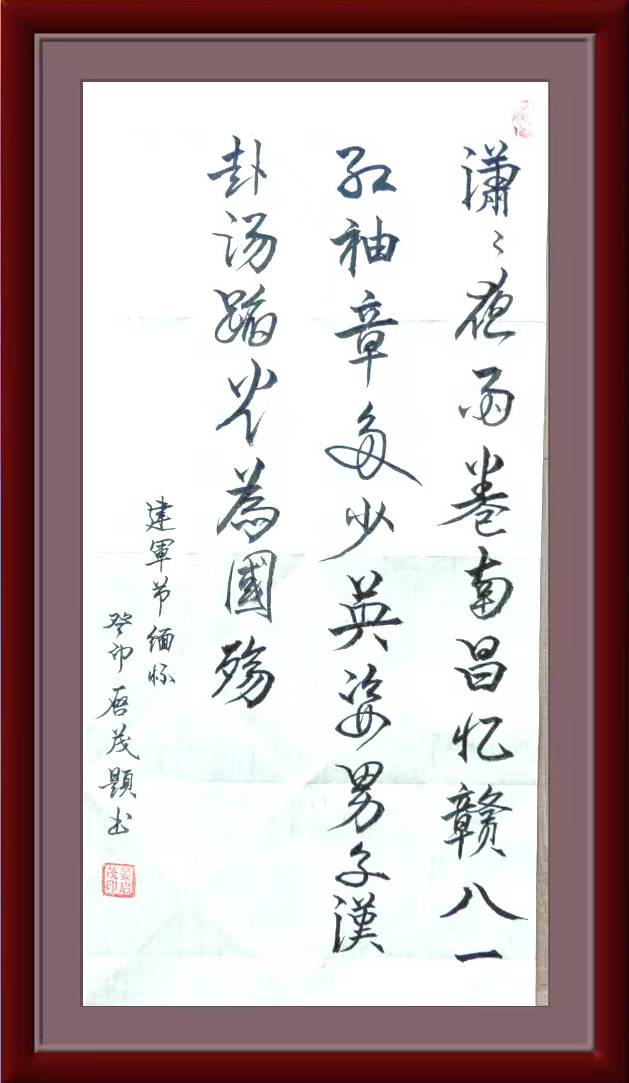 潇々夜雨卷南昌忆赣八一
红袖章多少英姿男子漢
赴汤蹈火為國殇
建軍节缅怀
癸卯启茂题书